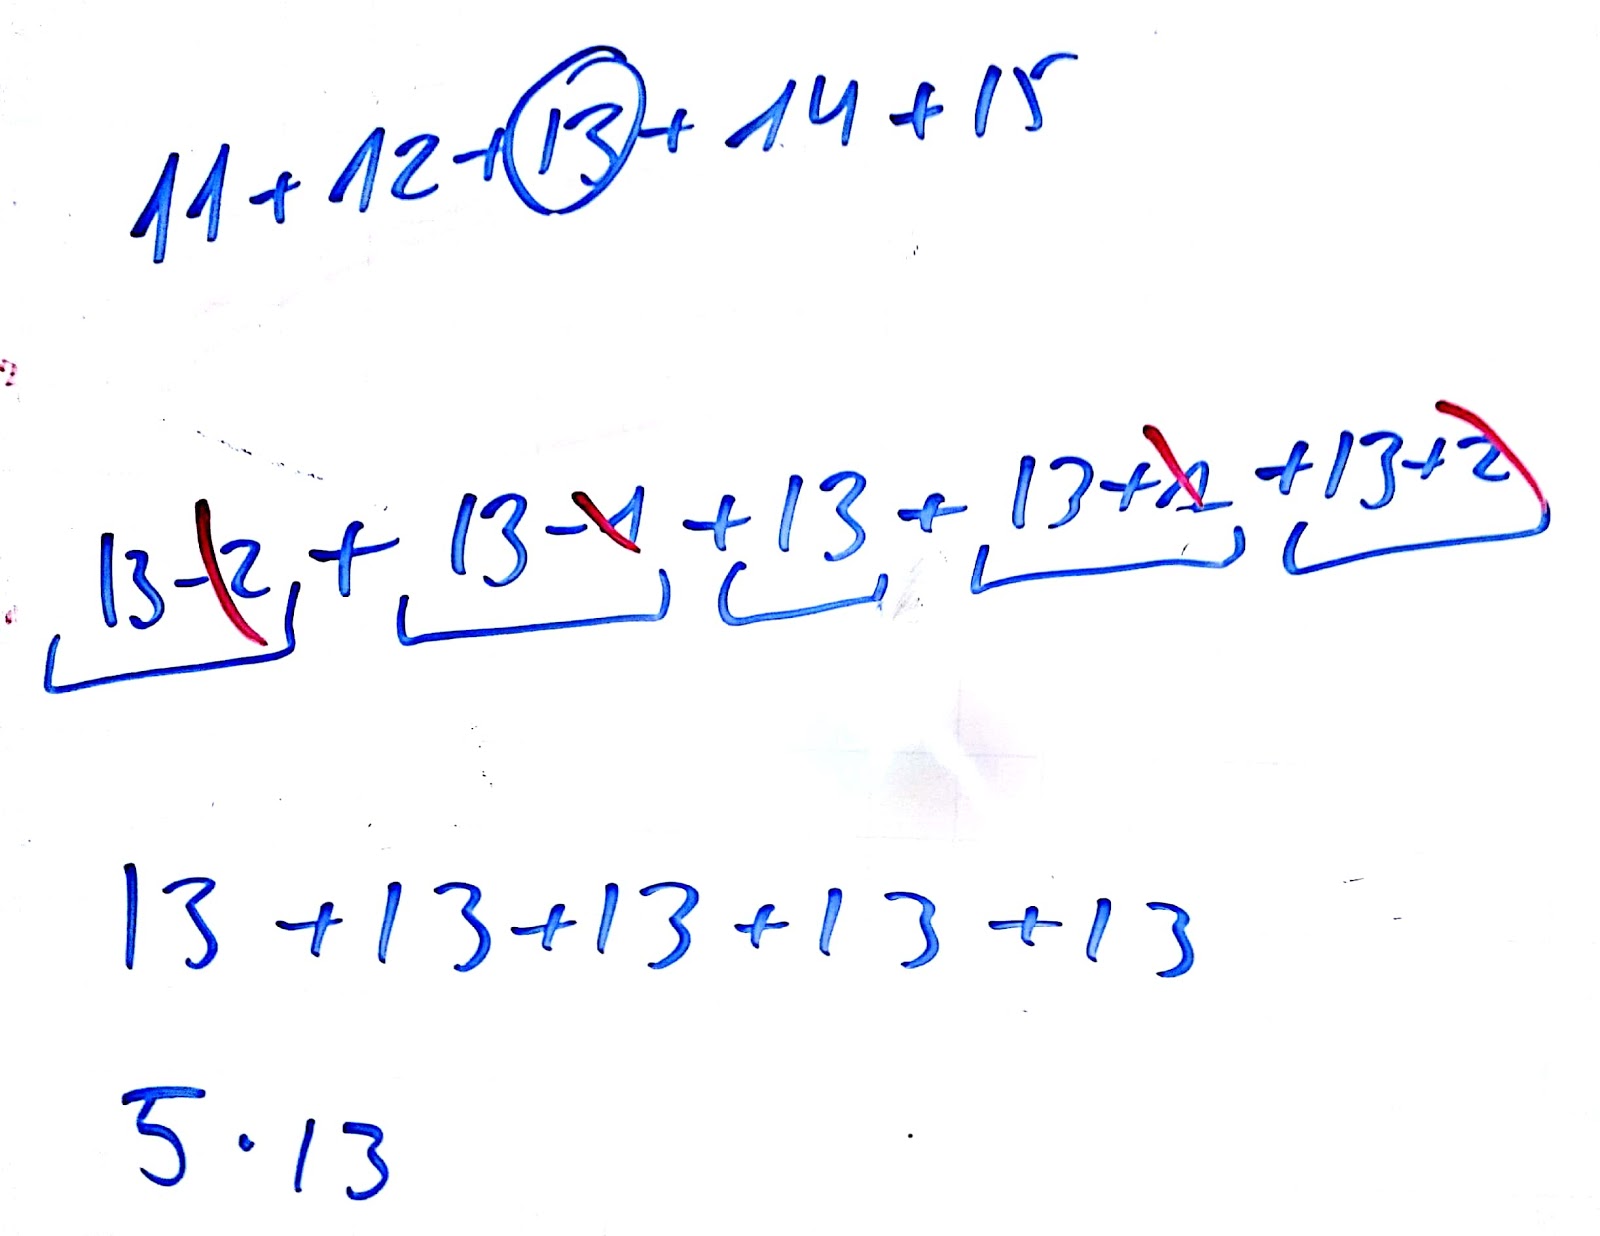 11 + 12 + 13 + 14 + 15
13-2 + 13-1 + 13 + 13+1 + 13+2
13 + 13 + 13 + 13 + 13
5 · 13